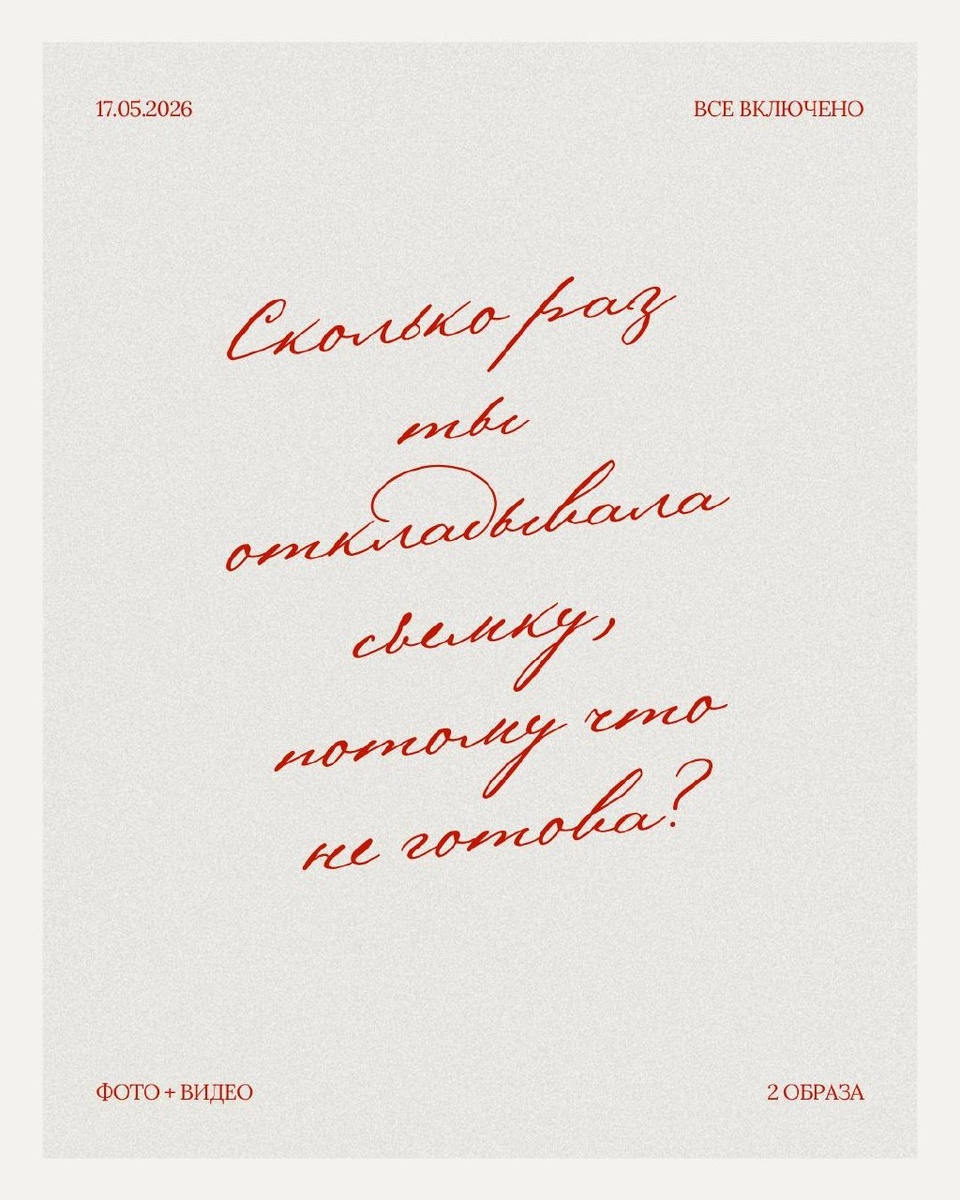 17.05.2026
ВСЕ ВКЛЮЧЕНО
Сколько раз
ты
откладывала
съемку,
потому что
не готова?
ФОТО + ВИДЕО
2 ОБРАЗА